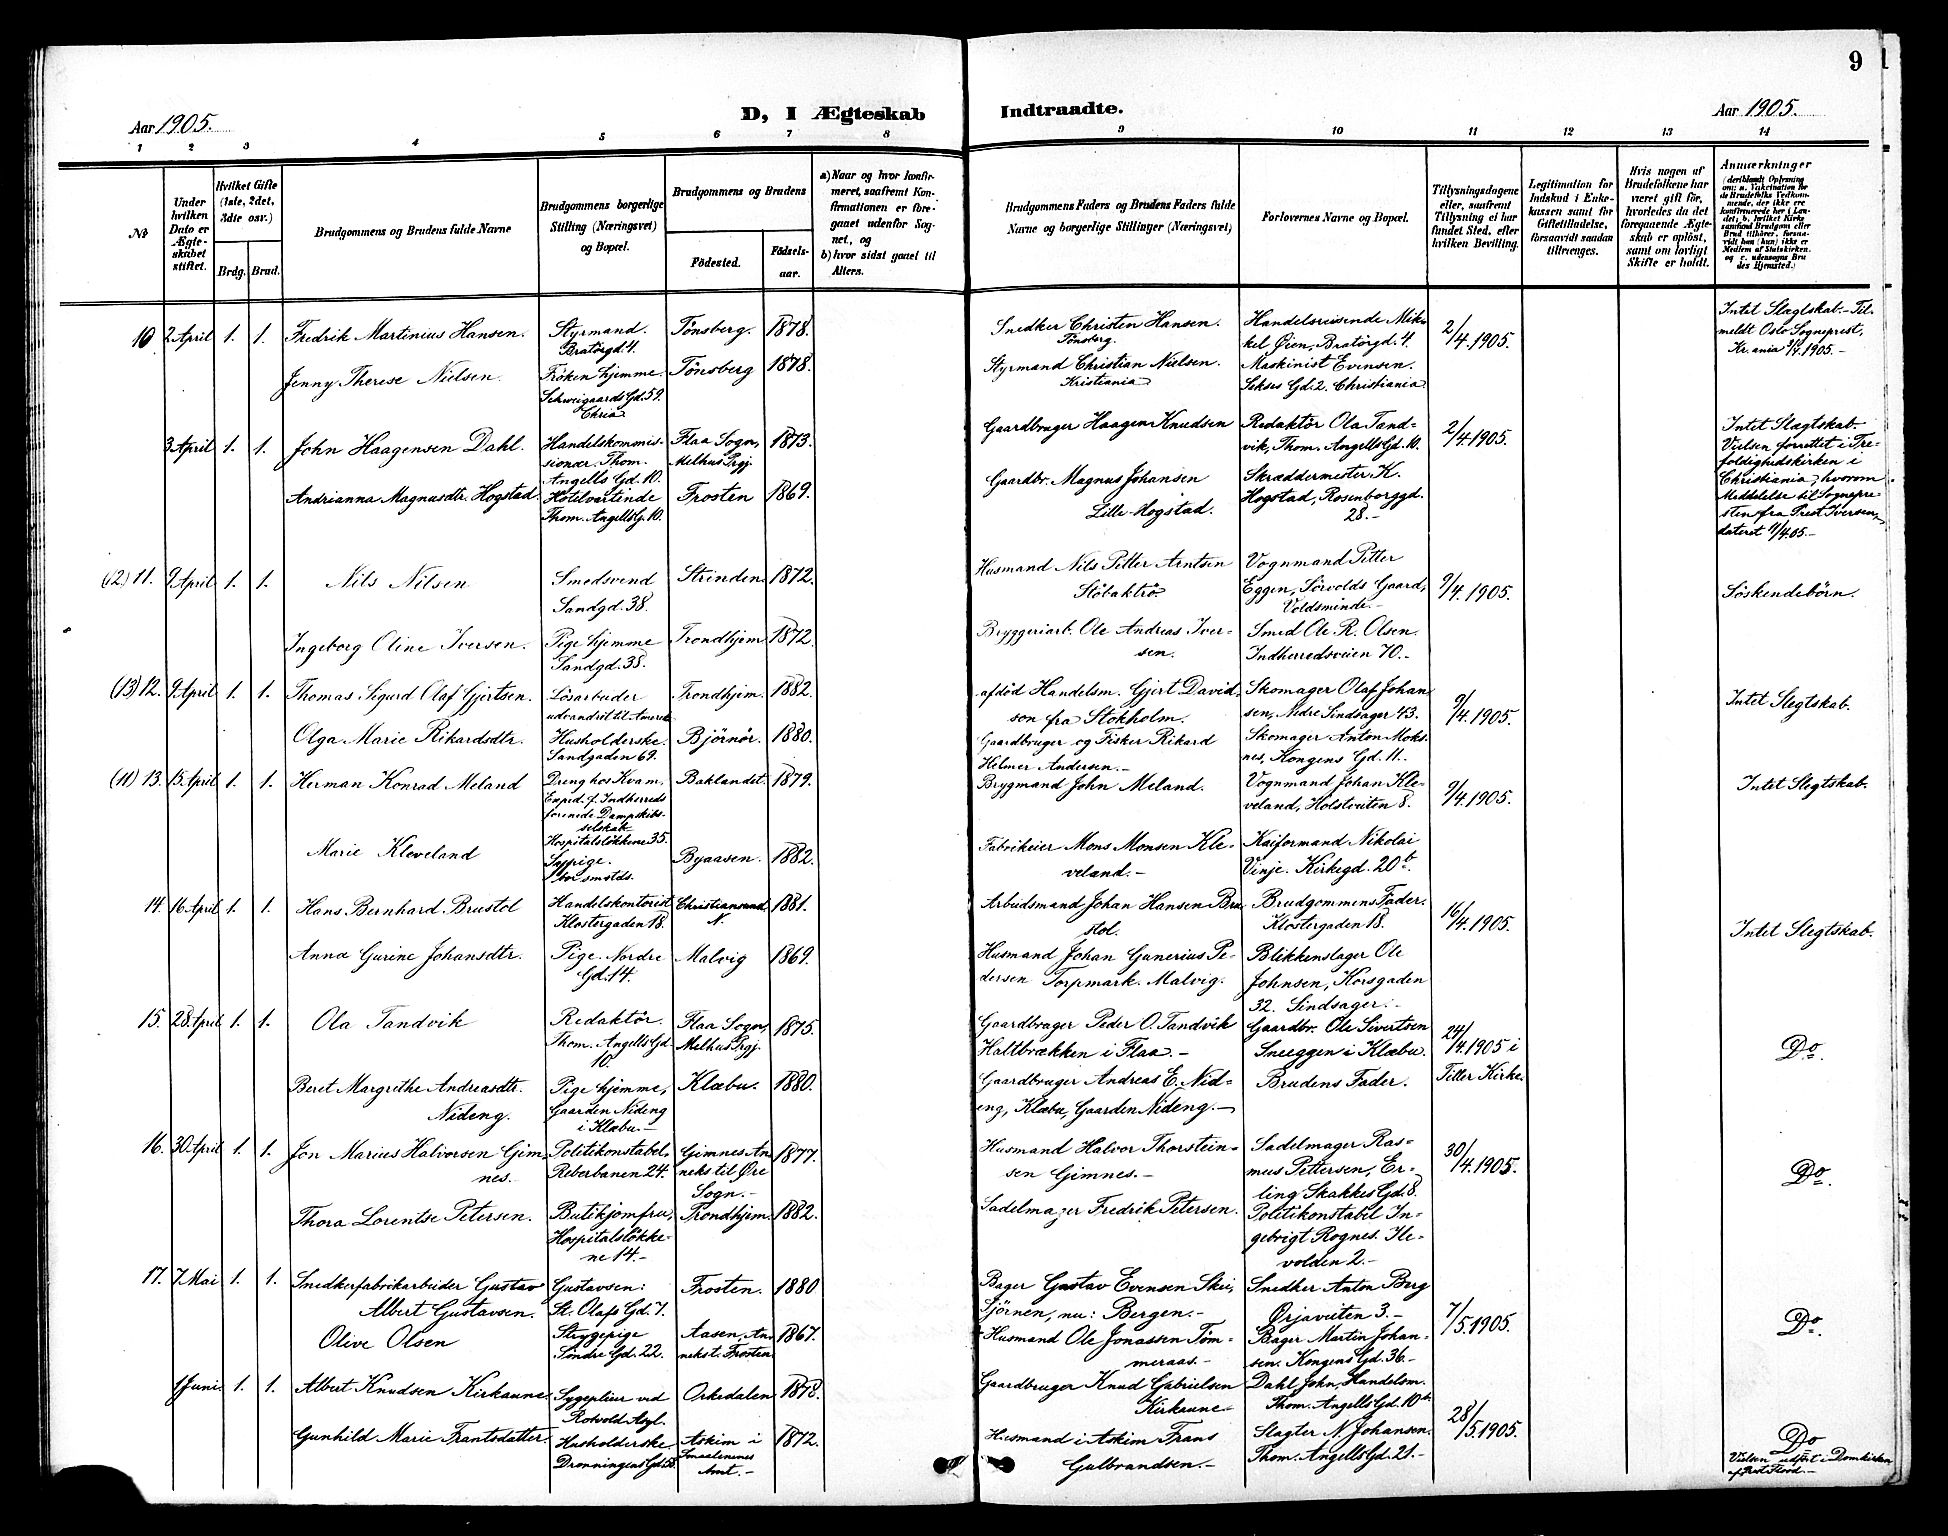 9
Aar 1905.
D, I Ægteskab Indtraadte.
Aar 1905.
1 2 3 4 5 6 7 8 9 10 11 12 13 14
№
Under hvilken Dato er Ægteskabet stiftet.
Hvilket Gifte (1ste, 2det, 3die osv.)
Brdg. Brud.
Brudgommens og Brudens fulde Navne
Brudgommens borgerlige Stilling (Næringsvei) og Bopæl.
Brudgommens og Brudens
Födested.
Födselsaar.
a) Naar og hvor konfirmeret, saafremt Konfirmationen er foregaaet udenfor Sognet, og
b) hvor sidst gaaet til Alters.
Brudgommens Faders og Brudens Faders fulde Navne og borgerlige Stillinger (Næringsvei)
Forlovernes Navne og Bopæl.
Tillysningsdagene eller, saafremt Tillysning ei har fundet Sted, efter hvilken Bevilling.
Legitimation for Indskud i Enkekassen samt for Giftetilladelse, forsaavidt saadan tiltrænges.
Hvis nogen af Brudefolkene har været gift før, hvorledes da det foregaaende Ægteskab er oplöst, samt om lovligt Skifte er holdt.
Anmærkninger
(deriblandt Oplysning om: a. Vaksination for de Brudefolks Vedkommende, der ikke ere konfirmerede her i Landet; b. hvilket Kirkesamfund Brudgom eller Brud tilhörer, forsaavidt han (hun) ikke er Medlem af Statskirken, og c. udensogns Brudes Hjemsted.)
10 2 April 1. 1. Fredrik Martinius Hansen. Styrmand. Bratørgd. 4. Tönsberg. 1878. Snedker Christen Hansen. Tönsberg. Handelsreisende Mikkel Øien, Bratørgd. 4. 2/4. 1905. Intet Slagtskab. - Tilmeldt Oslo Sogneprest, Kr.ania 3/4 1905. -
Jenny Therese Nielsen. Fröken hjemme. Schweigaards Gd. 59. Chria. Tönsberg 1878. Styrmand Christian Nielsen. Kristiania Maskinist Evensen. Sekses Gd. 2. Christiania
3 April 1. 1. John Haagensen Dahl. Handelskommissionær. Thom. Angells Gd. 10. Flaa Sogn, Melhus Prgj. 1873. Gaardbruger Haagen Knudsen Redaktör Ola Tandvik, Thom. Angells Gd. 10. 2/4. 1905. Intet Slagtskab. Vielsen forrettet i Trefoldighedskirken i Christiania, hvorom Meddelelse til Sognepresten fra Prest Iversen, dateret 11/4 05. -
Andrianna Magnusdtr. Hogstad. Hotelvartinde Thom. Angells G. 10. Frosten 1869. Gaardbr. Magnus Johansen Lille-Hogstad. Skræddermester K. Hogstad, Rosenborggd. 28. -
(12) 11. 9 April 1. 1. Nils Nilsen Smedsvend Sandgd. 38. Strinden. 1872. Husmand Nils Petter Arntsen Stöbaktrö. Vognmand Petter Eggen, Sörvolds Gaard, Voldsminde. - 9/4. 1905. Söskendebörn.
Ingeborg Oline Iversen. Pige hjemme Sandgd. 38. Trondhjem 1872. Bryggeriarb. Ole Andreas Iversen. Smed Ole R. Olsen. Indherredsveien 70. -
(13) 12. 9 April 1. 1. Thomas Sigurd Olaf Gjertsen. Lösarbeider udvandret til Amerek Trondhjem. 1882. afdöd Handelsm. Gjert Davidson fra Stokholm. Skomager Olaf Johansen, Nedre Sindsager 43. 9/4. 1905. Intet Slegtskab.
Olga Marie Rikardsdtr. Husholderske. Sandgaden 69. Björnör. 1880. Gaardbruger og Fisker Rikard Helmer Andersen. - Skomager Anton Moksnes, Kongens Gd. 11. -
(11) 13. 15 April 1. 1. Herman Konrad Meland Dreng hos Kvam, Exped. f. Indherreds forenede Dampskibsselskab Hospitalslökkene 35. Baklandet. 1879. Brygmand John Meland. Vognmand Johan Kleveland, Holstveiten 8. 9/4. 1905. Intet Slegtskab.
Marie Kleveland Byaasen. 1882. Fabrikeier Mons Monsen Kleveland. - Kaiformand Nikolai Vinje. Kirkegd. 20b.
14. 16 April 1. 1. Hans Bernhard Brustol Handelskontorist Klostergaden 18. Christiansund N. 1881. Arbeidsmand Johan Hansen Brustol. Brudgommens Fader. Klostergaden 18. 16/4. 1905. Intet Slegtskab.
Anna Gurine Johansdtr. Pige. Nordre Gd. 14. Malvig 1869. Husmand Johan Ganerius Pedersen Torpmark. Malvig. Blikkenslager Ole Johnsen, Korsgaden 32. Sindsager. -
15. 28 April 1. 1. Ola Tandvik Redaktör. Thom. Angells Gd 10. Flaa Sogn, Melhus Prgj. 1875. Gaardbruger Peder O. Tandvik Haltbrækken i Flaa. - Gaardbr. Ole Sivertsen Sneeggen i Klæbu. 24/4. 1905 i Tiller Kirke. Do.
Beret Margrethe Andreasdtr. Nideng. Pige hjemme, Gaarden Nideng i Klæbu. - Klæbu. 1880. Gaardbruger Andreas E. Nideng, Klæbu, Gaarden Nideng. - Brudens Fader.
16. 30 April 1. 1. Jon Marius Halvorsen Gimnes. Politikonstabel, Reberbanen 24. Gimnes Anneks til Øre Sogn. - 1877. Husmand Halvor Thorsteinsen Gimnes. - Sadelmager Rasmus Pettersen, Erling Skakkes Gd. 8. 30/4. 1905. Do.
Thora Lorentse Petersen. Butikjomfru, Hospitalslökkene 14. - Trondhjem. 1882. Sadelmager Fredrik Petersen. Politikonstabel Ingebrigt Rognes. Ilevolden 2. -
17. 7 Mai 1. 1. Snedkerfabrikarbeider Gustav Albert Gustavsen. Gustavsen: St. Olafs Gd. 7. Frosten. 1880 Bager Gustav Evensen Skei, Sjörnen, nu: Bergen. - Snedker Anton Berg Ørjaveiten 3. - 7/5. 1905. Do.
Olive Olsen Strygepige Söndre Gd. 22. Aasen, Annekst. Frosten 1867. Husmand Ole Jonassen Tömmeraas. - Bager Martin Johansen. Kongens Gd. 36. -
1 Juni. 1. 1. Albert Knudsen Kirkaune Sygepleier ved Rotvold Asyl. Orkedalen 1878. Gaardbruger Knud Gabrielsen Kirkaune Dahl John, Handelsm. Thom. Angells Gd. 10b. 28/5. 1905. Do Vielsen udført i Domkirken
Gunhild Marie Frantsdatter. Husholderske Dronningens Gd. Askim i Smaalenenes Amt. - 1872. Husmand i Askim Frans Gulbrandsen. - Slagter N. Johansen. Thom. Angells Gd. 21. -